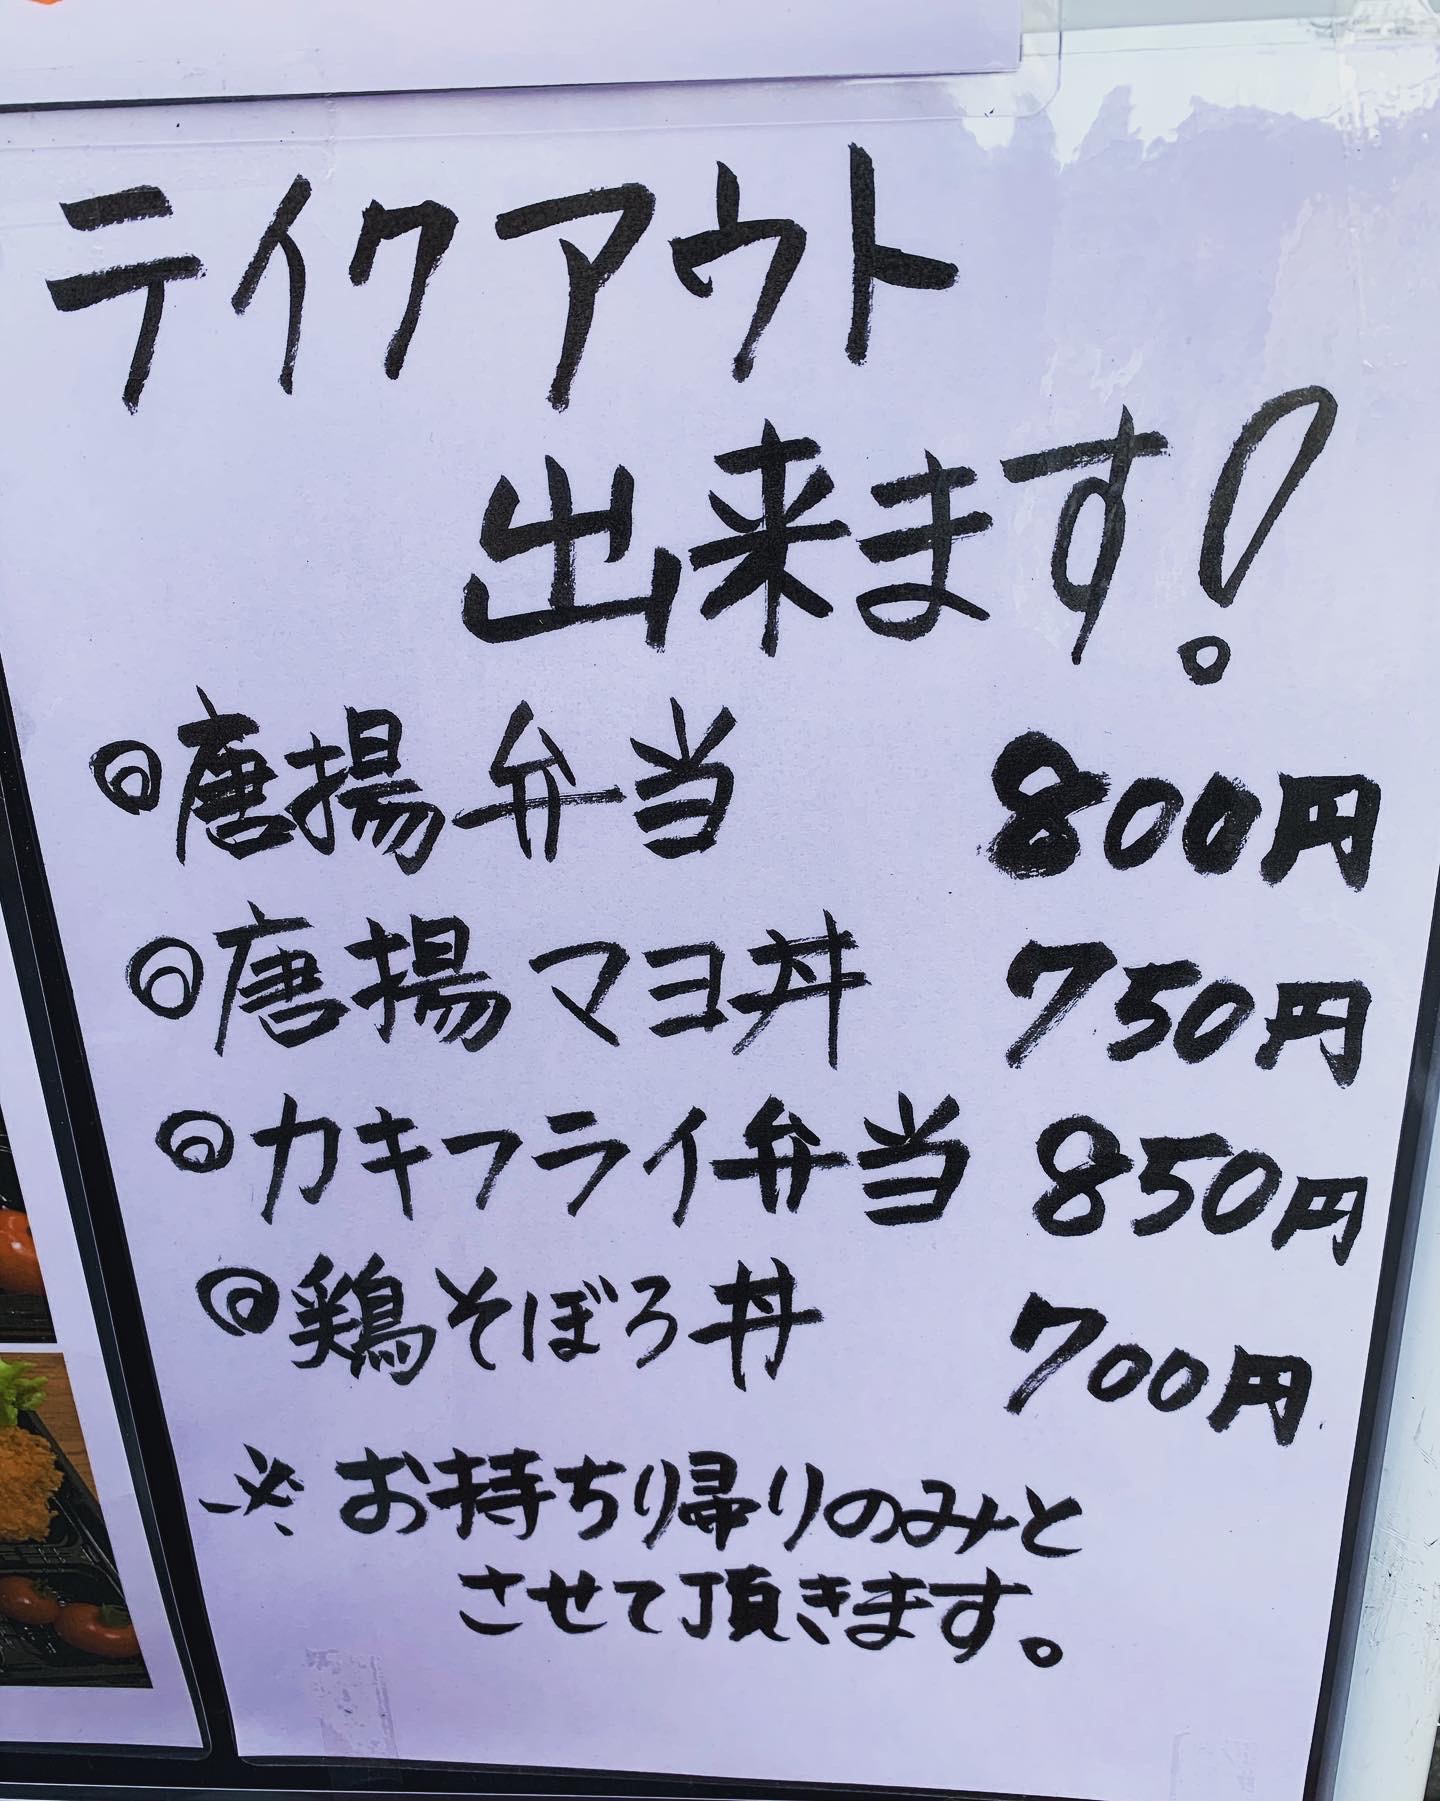 テイクアウト
出来ます!
◎唐揚弁当 800円
◎唐揚マヨ丼 750円
◎カキフライ弁当 850円
◎鶏そぼろ丼 700円
※お持ち帰りのみと
させて頂きます。